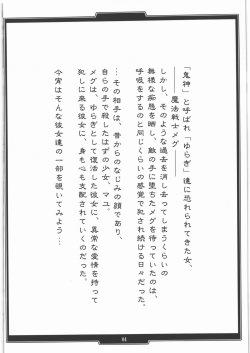 「鬼神」と呼ばれ「ゆらぎ」達に恐れられてきた女、
――魔法戦士メグ――
しかし、そのような過去を消し去ってしまうくらいの
無様な痴態を晒し、敵の手に堕ちたメグを待っていたのは、
呼吸をするのと同じくらいの感覚で犯され続ける日々だった。
…その相手は、昔からのなじみの顔であり、
自らの手で殺したはずの少女、マユ。
メグは、ゆらぎとして復活した彼女に、異常な愛情を持って
犯しに来る彼女に、身も心も支配されていくのだった。
今宵はそんな彼女達の一部を覗いてみよう…